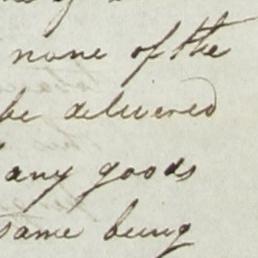 none of the
be delivered
any goods
same being